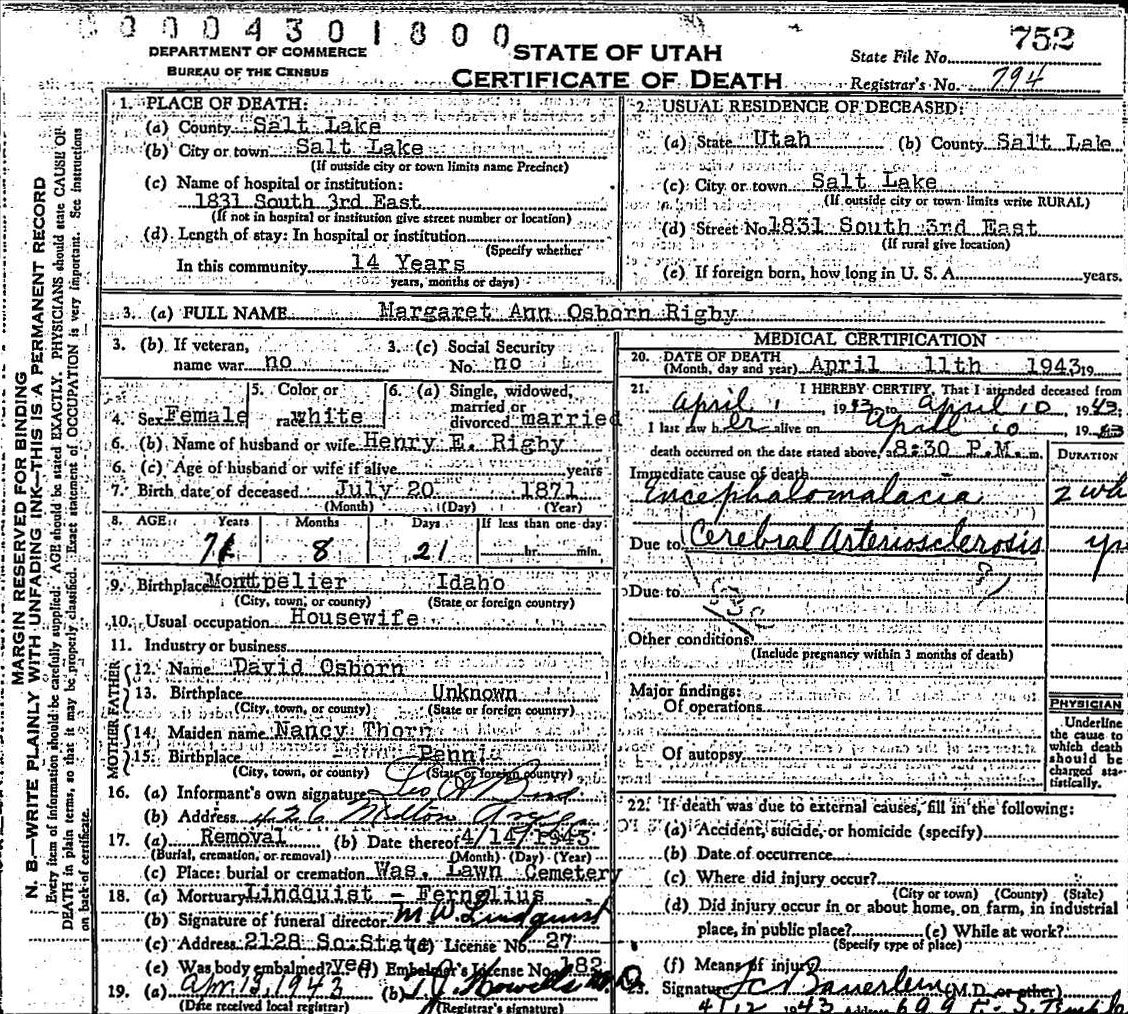 0004301800
752
DEPARTMENT OF COMMERCE
BUREAU OF THE CENSUS
STATE OF UTAH
CERTIFICATE OF DEATH
State File No.
Registrar's No. 794
MARGIN RESERVED FOR BINDING
N. B.—WRITE PLAINLY WITH UNFADING INK—THIS IS A PERMANENT RECORD
Every item of information should be carefully supplied. AGE should be stated EXACTLY. PHYSICIANS should state CAUSE OF
DEATH in plain terms, so that it may be properly classified. Exact statement of OCCUPATION is very important. See instructions
on back of certificate.
1. PLACE OF DEATH:
(a) County Salt Lake
(b) City or town Salt Lake
(If outside city or town limits name Precinct)
(c) Name of hospital or institution:
1831 South 3rd East
(If not in hospital or institution give street number or location)
(d) Length of stay: In hospital or institution
(Specify whether
In this community 14 Years
years, months or days)
2. USUAL RESIDENCE OF DECEASED:
(a) State Utah (b) County Salt Lake
(c) City or town Salt Lake
(If outside city or town limits write RURAL)
(d) Street No. 1831 South 3rd East
(If rural give location)
(e) If foreign born, how long in U. S. A. years.
3. (a) FULL NAME Margaret Ann Osborn Rigby
3. (b) If veteran, name war no
3. (c) Social Security No. no
4. Sex Female
5. Color or race white
6. (a) Single, widowed, married or divorced married
6. (b) Name of husband or wife Henry E. Rigby
6. (c) Age of husband or wife if alive years
7. Birth date of deceased July 20 1871
(Month) (Day) (Year)
8. AGE: Years Months Days If less than one day
71 8 21 hr. min.
9. Birthplace Montpelier Idaho
(City, town, or county) (State or foreign country)
10. Usual occupation Housewife
11. Industry or business
FATHER
12. Name David Osborn
13. Birthplace Unknown
(City, town, or county) (State or foreign country)
MOTHER
14. Maiden name Nancy Thorn
15. Birthplace Pennia
(City, town, or county) (State or foreign country)
16. (a) Informant's own signature
(b) Address 426
17. (a) Removal (b) Date thereof 4/14/1943
(Burial, cremation, or removal) (Month) (Day) (Year)
(c) Place: burial or cremation Was. Lawn Cemetery
18. (a) Mortuary Lindquist - Fernelius
(b) Signature of funeral director M. W. Lindquist
(c) Address 2128 So. State (d) License No. 27
(e) Was body embalmed? yes (f) Embalmer's License No. 182
19. (a) Apr. 13, 1943 (b) Howells M.D.
(Date received local registrar) (Registrar's signature)
MEDICAL CERTIFICATION
20. DATE OF DEATH
(Month, day and year) April 11th 1943 19
21. I HEREBY CERTIFY, That I attended deceased from
April 1 1943 to April 10, 1943
I last saw her alive on April 10, 1943
death occurred on the date stated above, at 8:30 P.M. m.
DURATION
Immediate cause of death
Encephalomalacia 2 wk
Due to Cerebral Arteriosclerosis
Due to
Other conditions
(Include pregnancy within 3 months of death)
Major findings:
Of operations
Of autopsy
PHYSICIAN
Underline
the cause to
which death
should be
charged sta-
tistically.
22. If death was due to external causes, fill in the following:
(a) Accident, suicide, or homicide (specify)
(b) Date of occurrence
(c) Where did injury occur?
(City or town) (County) (State)
(d) Did injury occur in or about home, on farm, in industrial
place, in public place? (e) While at work?
(Specify type of place)
(f) Means of injury
23. Signature Bauerlein (M.D. or other)
4/12 1943 Address 699 E. S. Temple